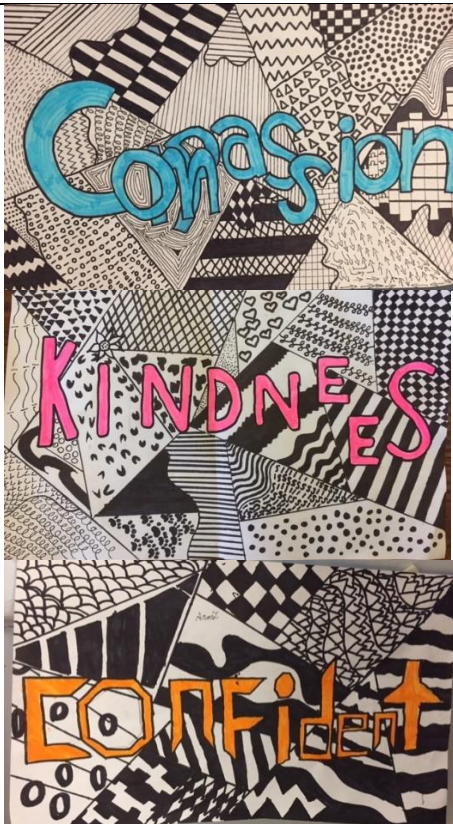 Compassion
KINDNEES
confident